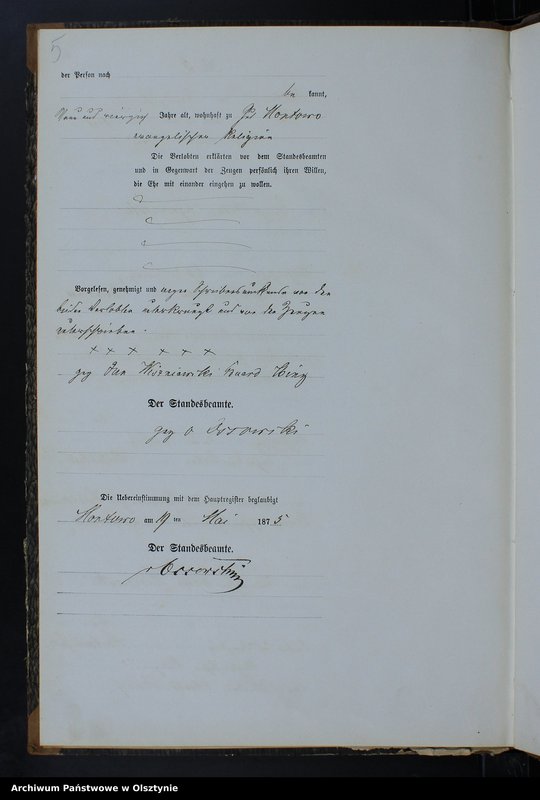 5
der Person nach
be kannt,
Neun und vierzig Jahre alt, wohnhaft zu Gut Montowo
evangelischer Religion
Die Verlobten erklärten vor dem Standesbeamten
und in Gegenwart der Zeugen persönlich ihren Willen,
die Ehe mit einander eingehen zu wollen.
Vorgelesen, genehmigt und wegen Schreibensunkunde von den
beiden Verlobten unterkreuzt und von den Zeugen
unterschrieben.
× × × × × ×
gez Jan Wiśniewski
Der Standesbeamte.
gez v Ossowski
Die Uebereinstimmung mit dem Hauptregister beglaubigt
Montowo am 19 ten Mai 1875
Der Standesbeamte.
v Ossowski
Archiwum Państwowe w Olsztynie